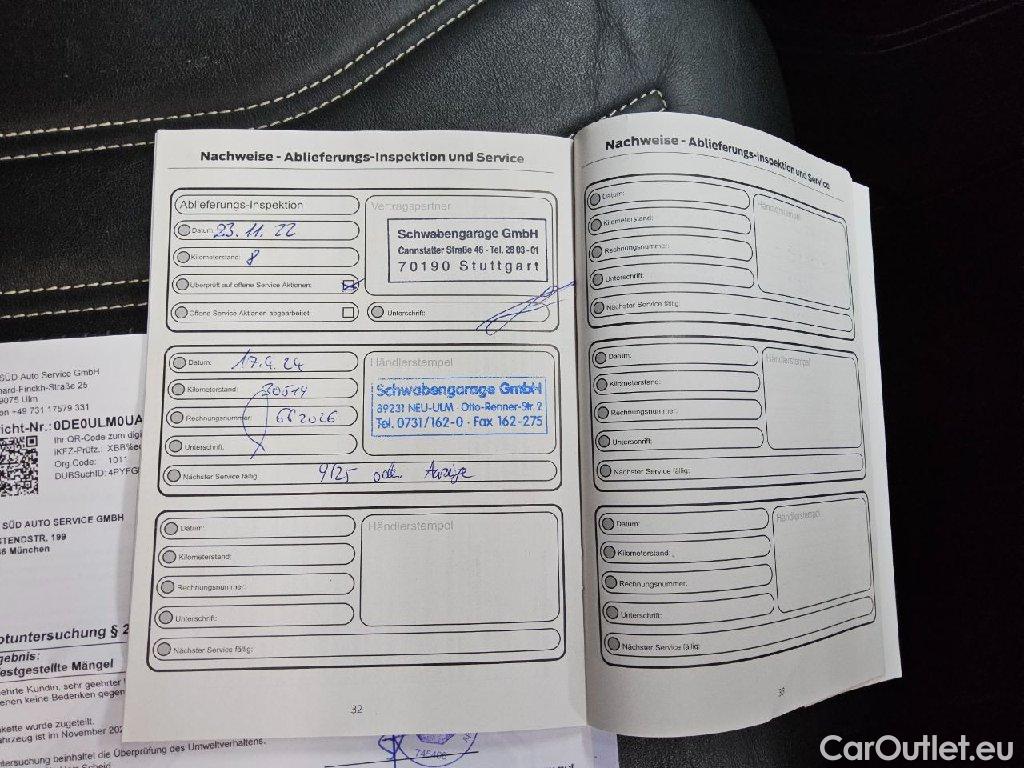 Nachweise - Ablieferungs-Inspektion und Service
Ablieferungs-Inspektion
Datum: 23.11.22
Kilometerstand: 8
Überprüft auf offene Service Aktionen:
Offene Service Aktionen abgearbeitet
Vertragspartner
Schwabengarage GmbH
Cannstatter Straße 46 - Tel. 28 03-01
70190 Stuttgart
Unterschrift:
Datum: 17.9.24
Kilometerstand: 30514
Rechnungsnummer:
Unterschrift:
Nächster Service fällig: 9/25 oder Anzeige
Händlerstempel
Schwabengarage GmbH
89231 NEU-ULM · Otto-Renner-Str. 2
Tel. 0731/162-0 · Fax 162-275
Datum:
Kilometerstand:
Rechnungsnummer:
Unterschrift:
Nächster Service fällig:
Händlerstempel
32
Nachweise - Ablieferungs-Inspektion und Service
Datum:
Kilometerstand:
Rechnungsnummer:
Unterschrift:
Nächster Service fällig:
Händlerstempel
Datum:
Kilometerstand:
Rechnungsnummer:
Unterschrift:
Nächster Service fällig:
Händlerstempel
Datum:
Kilometerstand:
Rechnungsnummer:
Unterschrift:
Nächster Service fällig:
Händlerstempel
SÜD Auto Service GmbH
Straße 25
Ulm
+49 731 17579 331
0DE0ULM0UA
Ihr QR-Code zum
IKFZ-Prüfz.:
Org.Code:
DUBSuchID:
SÜD AUTO SERVICE GMBH
199
München
§ 2
Mängel
sehr geehrter
keine Bedenken gegen
wurde zugeteilt.
ist im November
beinhaltet die Überprüfung des Umweltverhaltens.
CarOutlet.eu